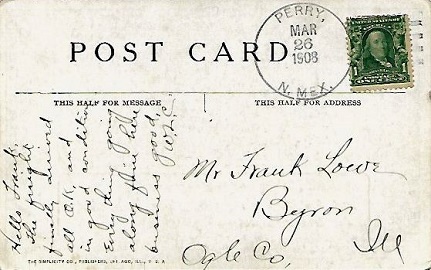 POST CARD
PERRY,
MAR
26
1908
N. MEX.
THIS HALF FOR MESSAGE
THIS HALF FOR ADDRESS
Hello Frank,
The freight
finally arrived
all O.K. and
in good condition
Everything going
along fine here
business good,
Mr Frank Lowe
Byron
Ogle Co,
Ill
THE SIMPLICITY CO., PUBLISHERS, CHICAGO, ILL., U. S. A.